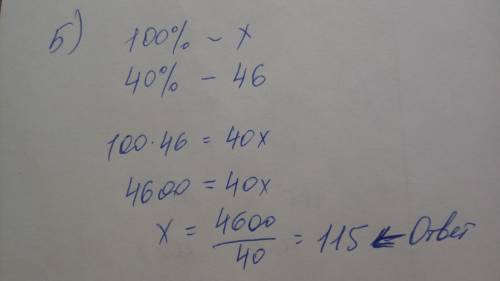 б) 100% - x
40% - 46
100·46 = 40x
4600 = 40x
x = 4600/40 = 115 ← Ответ